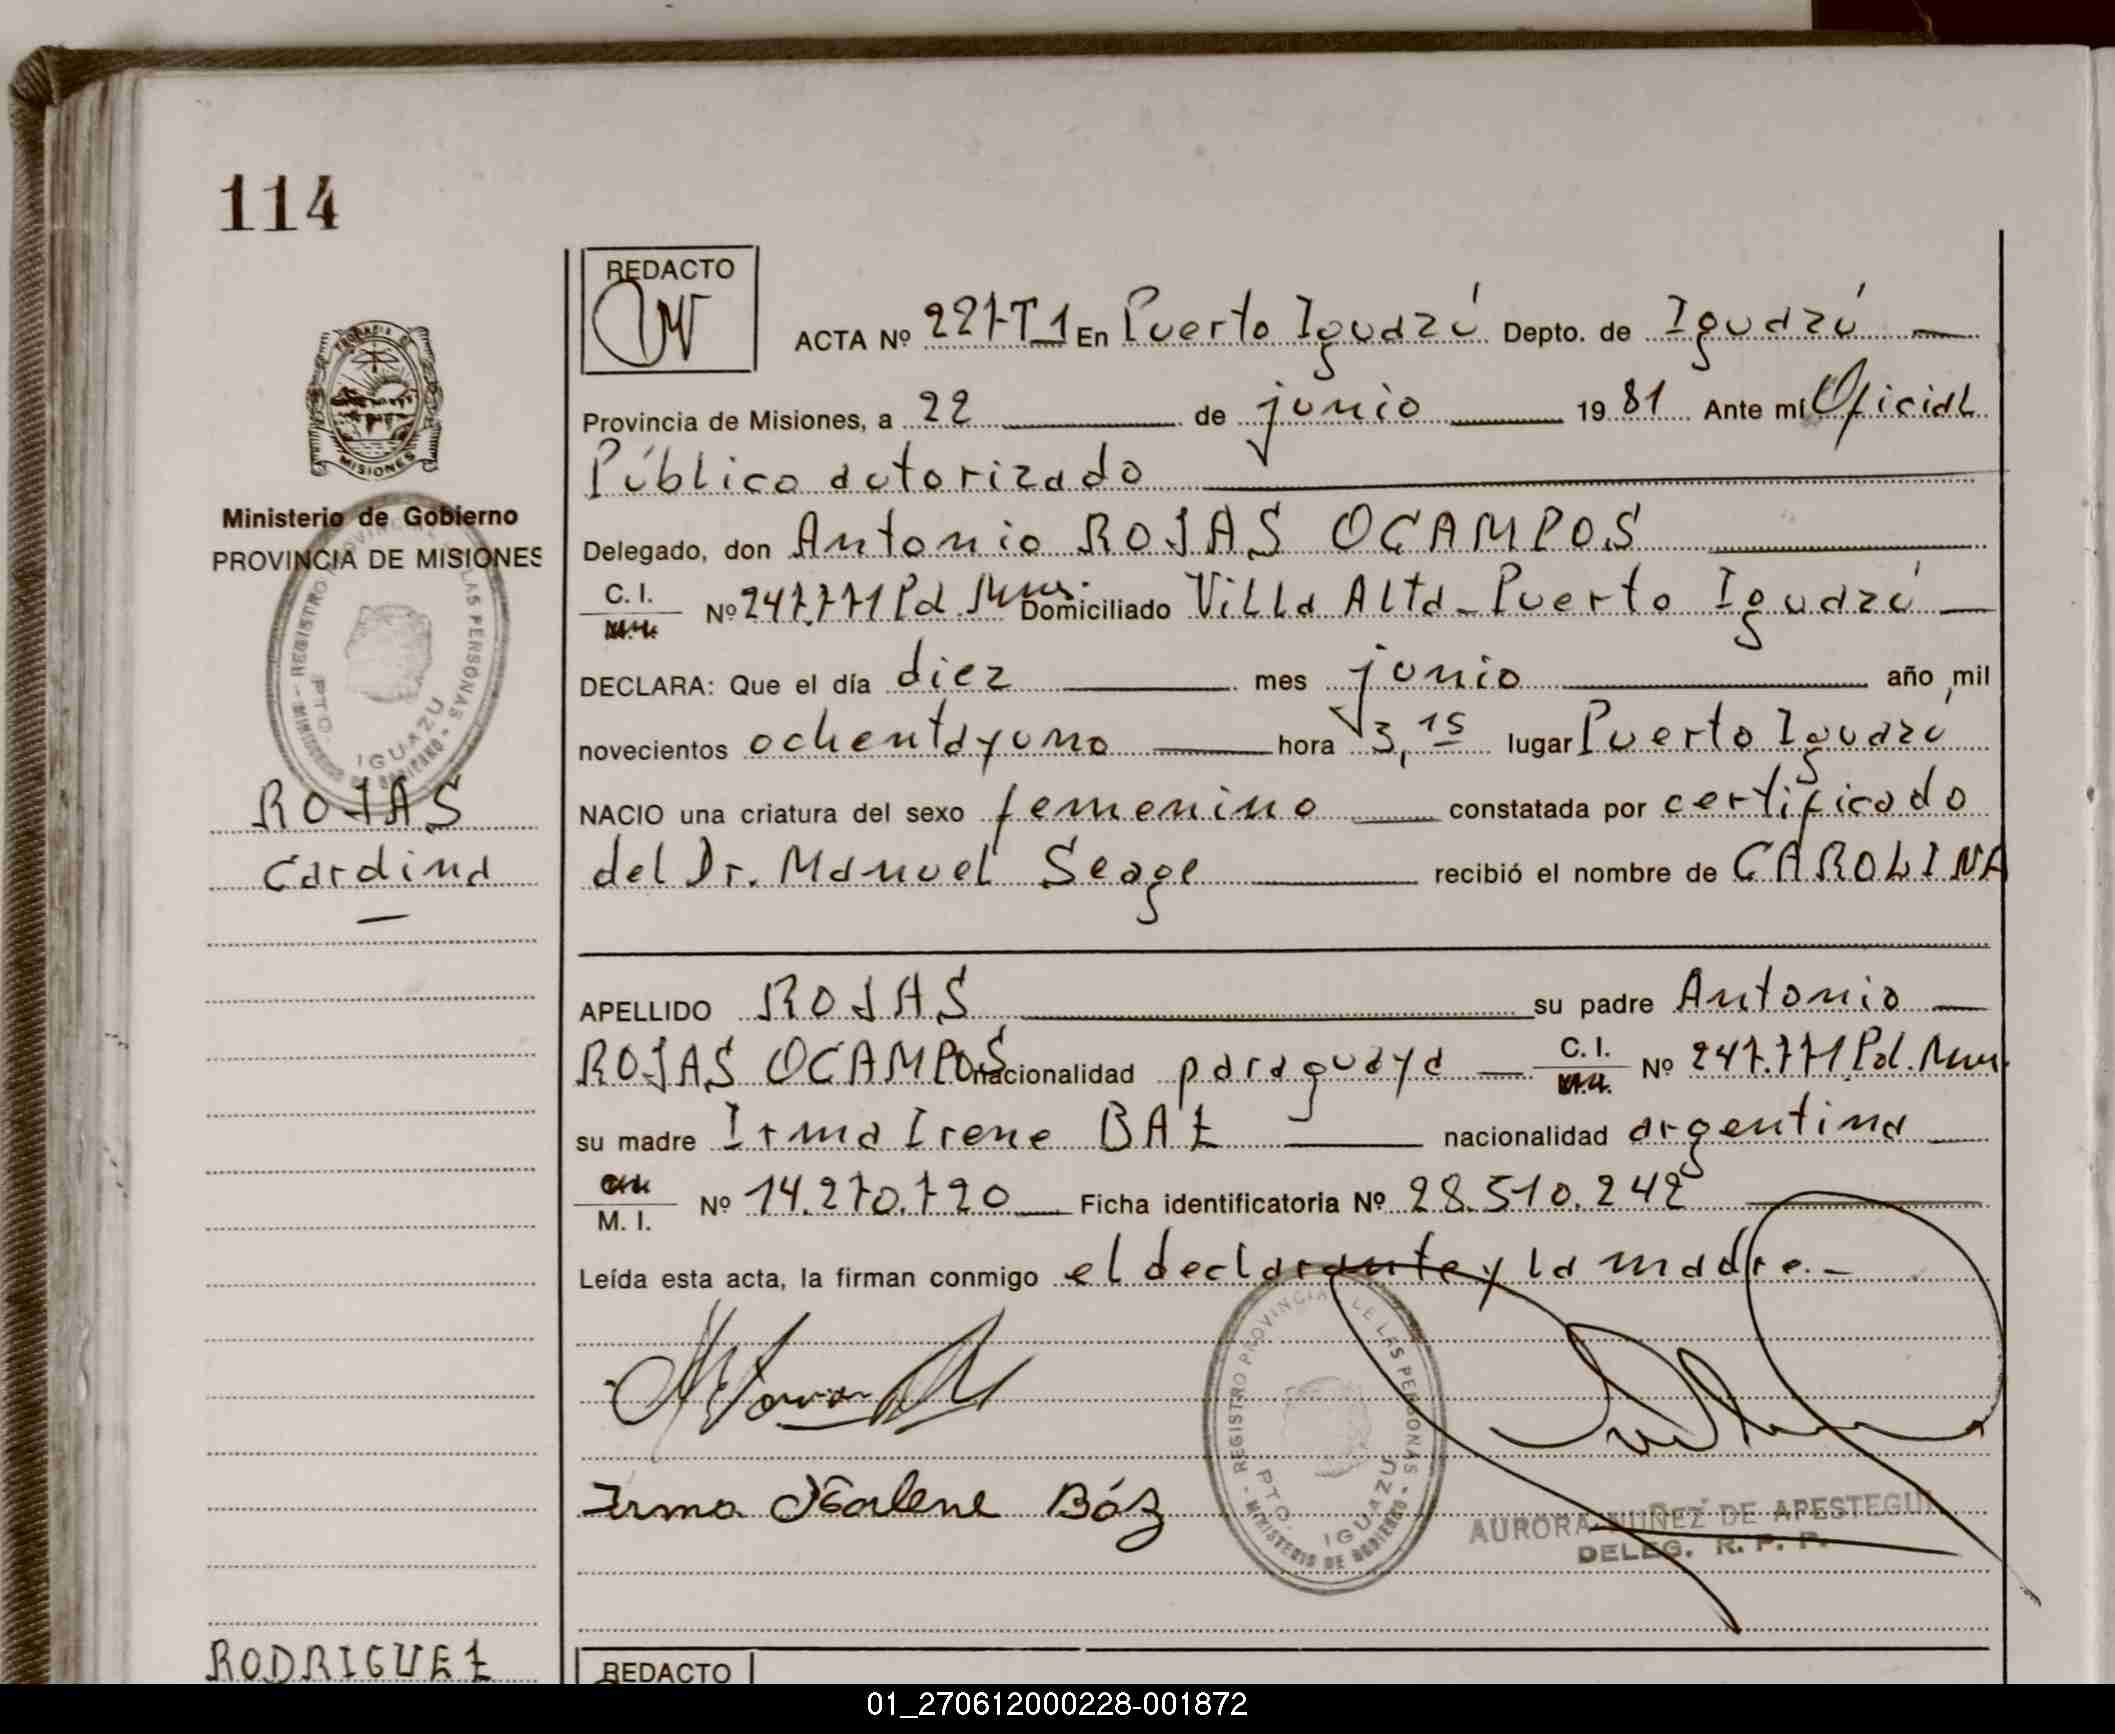 114
REDACTO
ACTA Nº 227-T1 En Puerto Iguazú Depto. de Iguazú
Provincia de Misiones, a 22 de junio 1981 Ante mí Oficial
Público autorizado
MISIONES
Ministerio de Gobierno
PROVINCIA DE MISIONES
Delegado, don Antonio ROJAS OCAMPOS
C. I. Nº 247.771 Pd. Domiciliado Villa Alta - Puerto Iguazú
DECLARA: Que el día diez mes junio año mil
novecientos ochentayuno hora 3,15 lugar Puerto Iguazú
NACIO una criatura del sexo femenino constatada por certificado
del Dr. Manuel Seage recibió el nombre de CAROLINA
REGISTRO PROVINCIAL DE LAS PERSONAS - MINISTERIO DE GOBIERNO -
PTO. IGUAZU
ROJAS
Carolina
APELLIDO ROJAS su padre Antonio
ROJAS OCAMPOS nacionalidad paraguaya C. I. Nº 247.771 Pd.
su madre Irma Irene BAEZ nacionalidad argentina
M. I. Nº 14.270.720 Ficha identificatoria Nº 28.510.242
Leída esta acta, la firman conmigo el declarante y la madre.-
Irma Báz
REGISTRO PROVINCIAL DE LAS PERSONAS - MINISTERIO DE GOBIERNO -
PTO. IGUAZU
AURORA NUÑEZ DE APESTEGUI
DELEG. R. P. P.
RODRIGUEZ
REDACTO
01_270612000228-001872